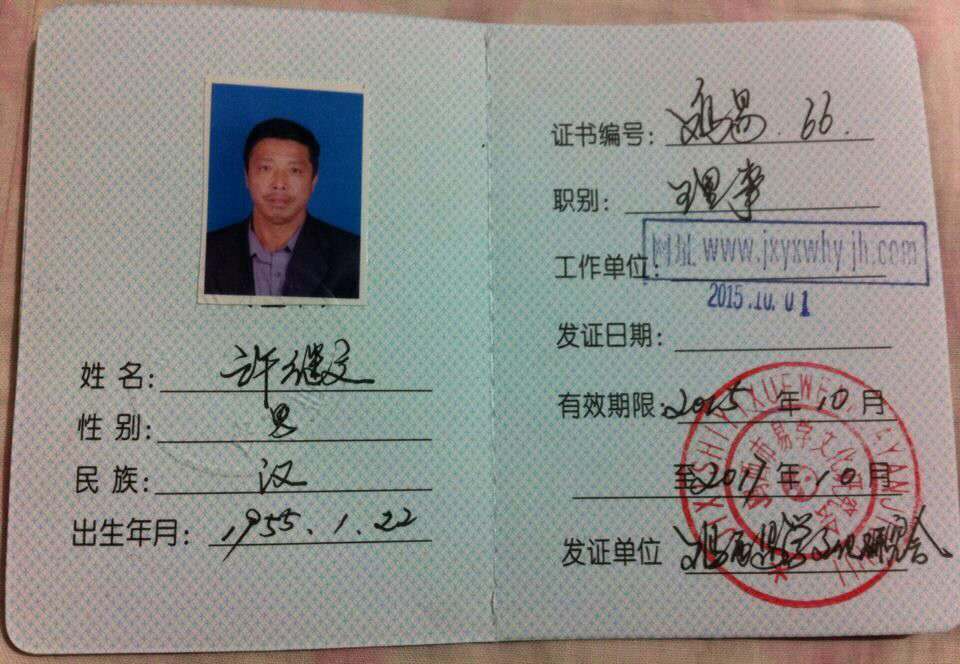 姓 名: 许继文
性 别: 男
民 族: 汉
出生年月: 1955.1.22
证书编号: 易.66.
职别: 理事
工作单位: 网址 www.jxyxwhyjh.com
2015.10.01
发证日期:
有效期限: 2015 年 10 月
至 201 年 10 月
发证单位 易学文化研究会
市易学文化研究会